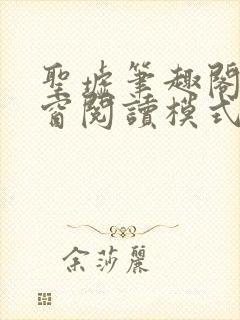 聖墟筆趣閣
窗閱讀模式
余莎麗